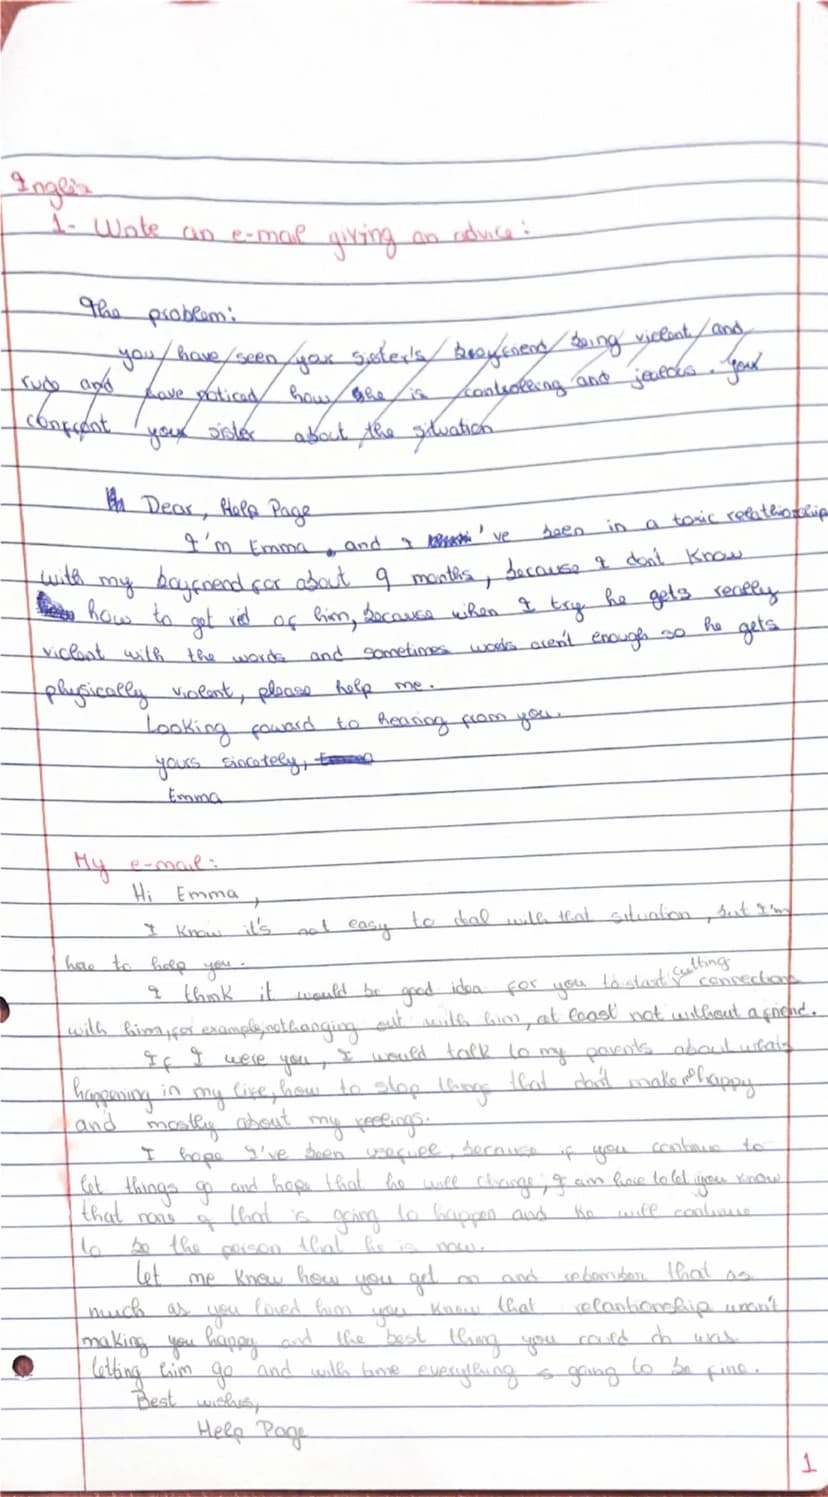 Inglês
1- Write an e-mail giving an advice:
The problem:
you have seen your sister's boyfriend being violent and
rude and have noticed how she is controlling and jealous. You
confront your sister about the situation
Dear, Help Page
I'm Emma, and I 've been in a toxic relathionship
with my boyfriend for about 9 months, because I don't know
how to get rid of him, because when I try he gets really
violent with the words and sometimes words aren't enough so he gets
physically violent, please help me.
Looking foward to hearing from you.
yours sincerely,
Emma
My e-mail:
Hi Emma,
I know it's not easy to dial with that situation, but I'm
here to help you.
I think it would be good idea for you to start cutting connections
with him, for example, not hanging out with him, at least not without a friend.
If I were you, I would talk to my parents about whats
happening in my live, how to stop things that don't make me happy
and mostly about my feelings.
I hope I've been usefull, because if you continue to
let things go and hope that he will change, I am here to let you know
that none of that is going to happen and he will continue
to be the person that he is now.
Let me know how you get on and remember that as
much as you loved him you know that relantionship wasn't
making you happy and the best thing you could do was
letting him go and with time everything is going to be fine.
Best wishes,
Help Page
1